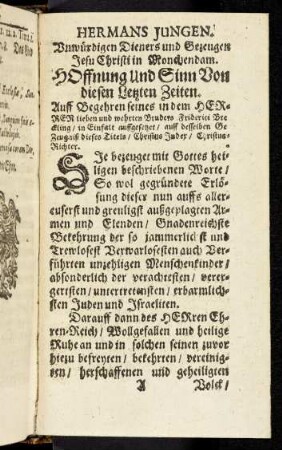 HERMANS JUNGEN.
Unwürdigen Dieners und Gezeugen
Jesu Christi in Monchendam.
HOffnung Und Sinn Von
diesen Letzten Zeiten.
Auff Begehren seines in dem HER-
REN lieben und wehrten Bruders Friderici Bre
ckling / in Einfalt auffgesetzet / auff desselben Ge
Zeugniß dieses Titels / Christus Judex / Christus-
Richter.
SIe bezeuget mit Gottes hei-
ligen beschriebenen Worte /
So wol gegründete Erlö-
sung dieser nun auffs aller-
euserst und greuligst außgeplagten Ar-
men und Elenden / Gnadenreichste
Bekehrung der so jammerlich st und
Trewlosest Verwarlosesten auch Ver-
führten unzehligen Menschenkinder /
absonderlich der verachtesten / verer-
gertesten / untertretensten / erbarmlich-
sten Juden und Israeliten.
Darauff dann des HERren Eh-
ren-Reich / Wollgefallen und heilige
Ruhe an und in solchen seinen zuvor
hiezu befreyten / bekehrten / vereinig-
ten / herschaffenen und geheiligten
A Volck /